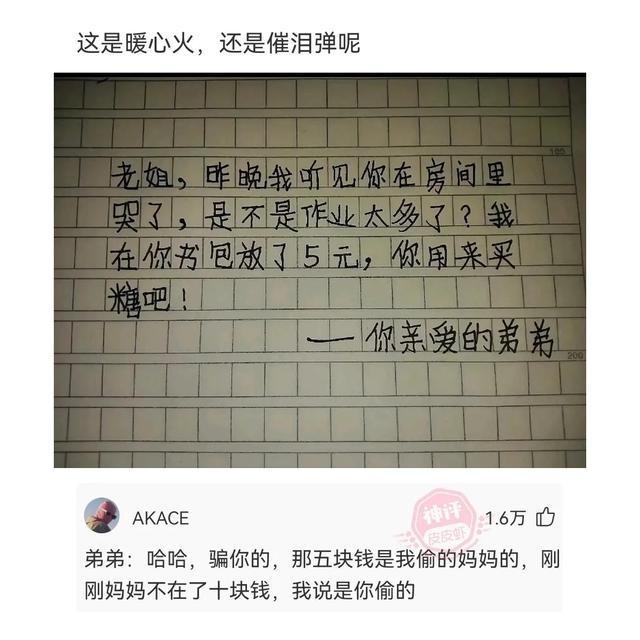 这是暖心火，还是催泪弹呢
100
老姐，昨晚我听见你在房间里
哭了，是不是作业太多了？我
在你书包放了5元，你用来买
糖吧！
——你亲爱的弟弟
200
AKACE
神评
皮皮虾
1.6万
弟弟：哈哈，骗你的，那五块钱是我偷的妈妈的，刚
刚妈妈不在了十块钱，我说是你偷的